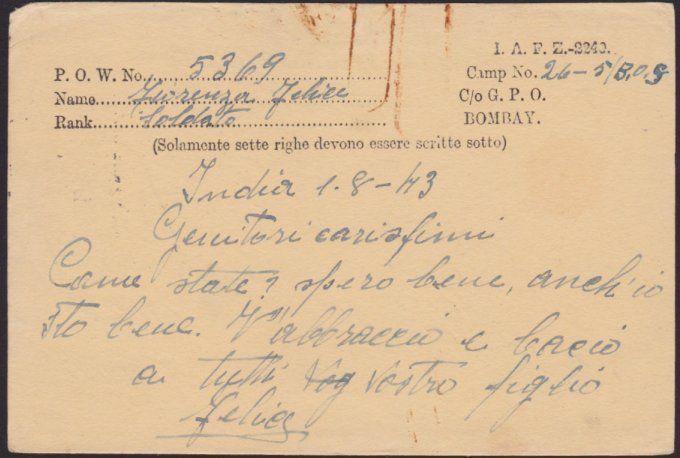 I. A. F. Z.-2240.
P. O. W. No. 5369
Camp No. 26-5/B.O.S
Name Fiorenza Felice
C/o G. P. O.
Rank Soldato
BOMBAY.
(Solamente sette righe devono essere scritte sotto)
India 1-8-43
Genitori carissimi
Come state? spero bene, anch'io
sto bene. V'abbraccio e bacio
a tutti Vostro figlio
Felice